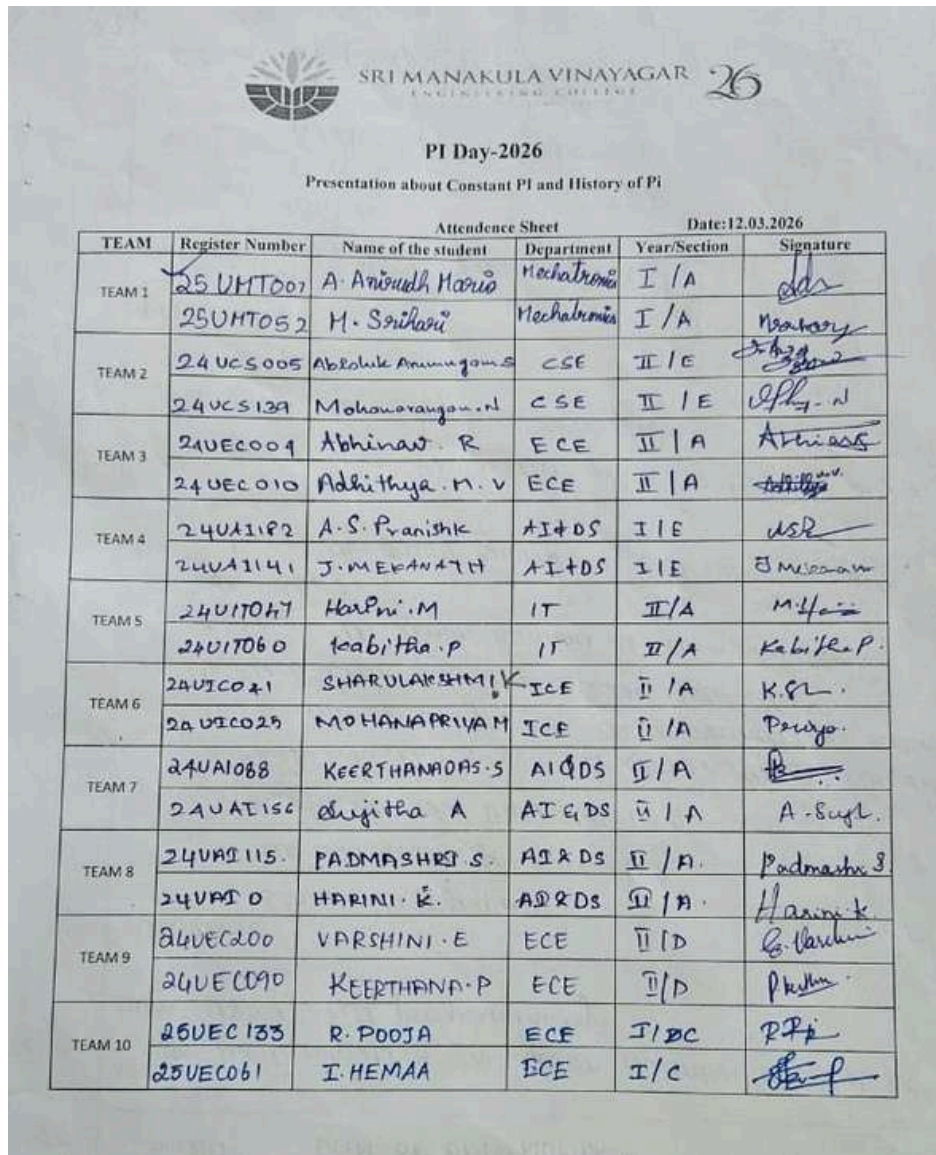 SRI MANAKULA VINAYAGAR 26
ENGINEERING COLLEGE
PI Day-2026
Presentation about Constant PI and History of Pi
Attendence Sheet Date:12.03.2026
TEAM Register Number Name of the student Department Year/Section Signature
TEAM 1
25UMT007 A. Anirudh Mario Mechatronics I/A
25UMT052 M. Srihari Mechatronics I/A
TEAM 2
24UCS005 Arumugam.S CSE II/E
24UCS139 Mohanarangan.N CSE II/E
TEAM 3
24UEC004 Abhinav. R ECE II/A
24UEC010 Adhithya. M. V ECE II/A
TEAM 4
24UAI182 A.S. Pranishk AI&DS I/E
24UAI141 J. MEKANATH AI+DS I/E
TEAM 5
24UIT047 Harini.M IT II/A
24UIT060 Kabitha.P IT II/A Kabitha P.
TEAM 6
24UICO41 SHARULAKSHMI.K ICE II/A
24UICO25 MOHANAPRIYA M ICE II/A Priya.
TEAM 7
24UAI088 KEERTHANADAS.S AI&DS II/A
24UAI156 Sujitha A AI&DS II/A
TEAM 8
24UAI115. PADMASHRI S. AI&DS II/A. Padmashri S
24UAI 0 HARINI. K. AI&DS II/A. Harini.k
TEAM 9
24UEC200 VARSHINI.E ECE II/D E.Varshini
24UEC090 KEERTHANA.P ECE II/D
TEAM 10
25UEC133 R. POOJA ECE I/C
25UEC061 I. HEMAA ECE I/C